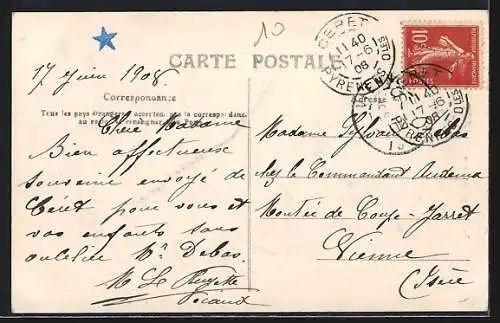 10
CERET
11 40
17-6
08
PYRENEES
10
CARTE POSTALE
17 Juin 1908
Correspondance
Tous les pays étrangers n'acceptent pas la correspondance
au recto
Adresse
Chère Madame
Bien affectueux
souvenir envoyé de
Céret pour vous et
vos enfants sans
oublier Mr Debas.
M Le
Madame Sylvain Debas
chez le Commandant
Montée de Coupe-Jarret
Vienne
(Isère)